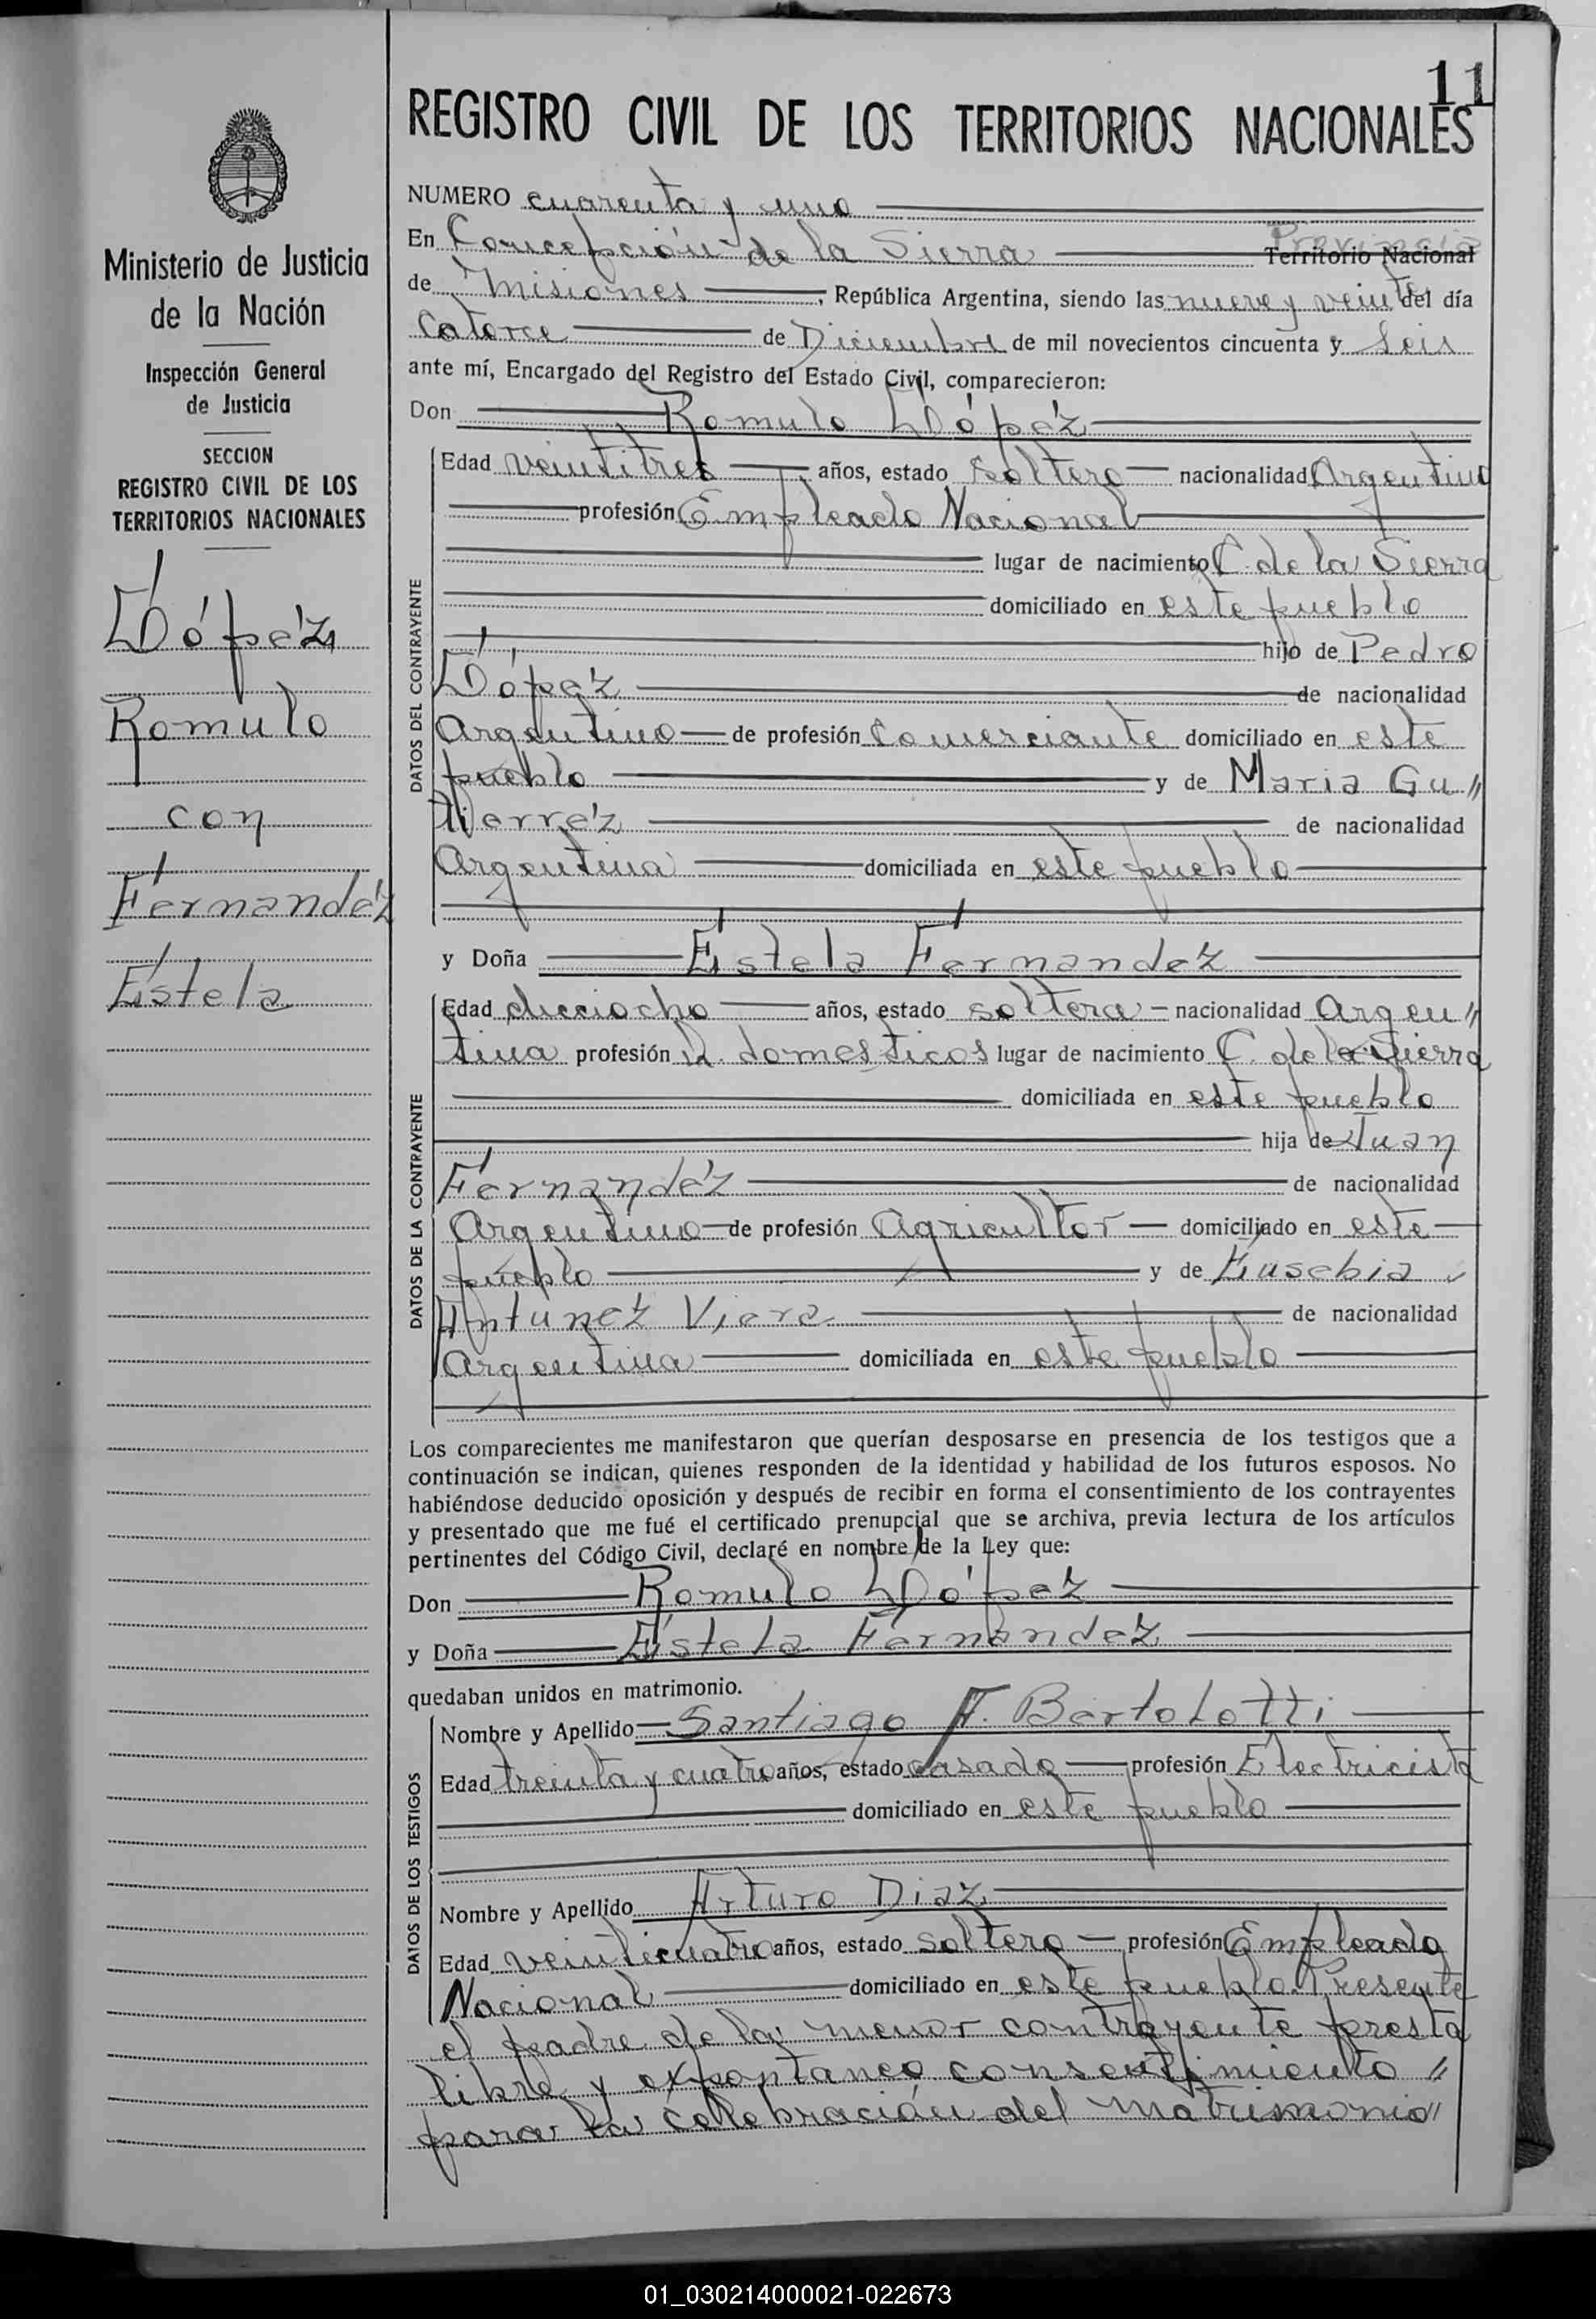 11
REGISTRO CIVIL DE LOS TERRITORIOS NACIONALES
Ministerio de Justicia
de la Nación
Inspección General
de Justicia
SECCION
REGISTRO CIVIL DE LOS
TERRITORIOS NACIONALES
López
Romulo
con
Fernandéz
Estela
NUMERO cuarenta y uno
Provincia
En Concepción de la Sierra Territorio Nacional
de Misiones, República Argentina, siendo las nueve y veinte del día
Catorce de Diciembre de mil novecientos cincuenta y Seis
ante mí, Encargado del Registro del Estado Civil, comparecieron:
Don Romulo López
DATOS DEL CONTRAYENTE
Edad veintitres años, estado soltero nacionalidad Argentino
profesión Empleado Nacional
lugar de nacimiento C. de la Sierra
domiciliado en este pueblo
hijo de Pedro
López de nacionalidad
Argentino de profesión Comerciante domiciliado en este
pueblo y de Maria Gu"
tierrez de nacionalidad
Argentina domiciliada en este pueblo
y Doña Estela Fernandez
DATOS DE LA CONTRAYENTE
Edad dieciocho años, estado soltera nacionalidad Argen"
tina profesión q. domesticos lugar de nacimiento C. de la Sierra
domiciliada en este pueblo
hija de Juan
Fernandéz de nacionalidad
Argentino de profesión Agricultor domiciliado en este
pueblo y de Eusebia
Antunez Viera de nacionalidad
Argentina domiciliada en este pueblo
Los comparecientes me manifestaron que querían desposarse en presencia de los testigos que a
continuación se indican, quienes responden de la identidad y habilidad de los futuros esposos. No
habiéndose deducido oposición y después de recibir en forma el consentimiento de los contrayentes
y presentado que me fué el certificado prenupcial que se archiva, previa lectura de los artículos
pertinentes del Código Civil, declaré en nombre de la Ley que:
Don Romulo López
y Doña Estela Fernandez
quedaban unidos en matrimonio.
DATOS DE LOS TESTIGOS
Nombre y Apellido Santiago F. Bertolotti
Edad treinta y cuatro años, estado casado profesión Electricista
domiciliado en este pueblo
Nombre y Apellido Arturo Diaz
Edad veinticuatro años, estado soltero profesión Empleado
Nacional domiciliado en este pueblo. Presente
el padre de la menor contrayente presta
libre y expontaneo consentimiento "
para la celebración del matrimonio"
01_030214000021-022673